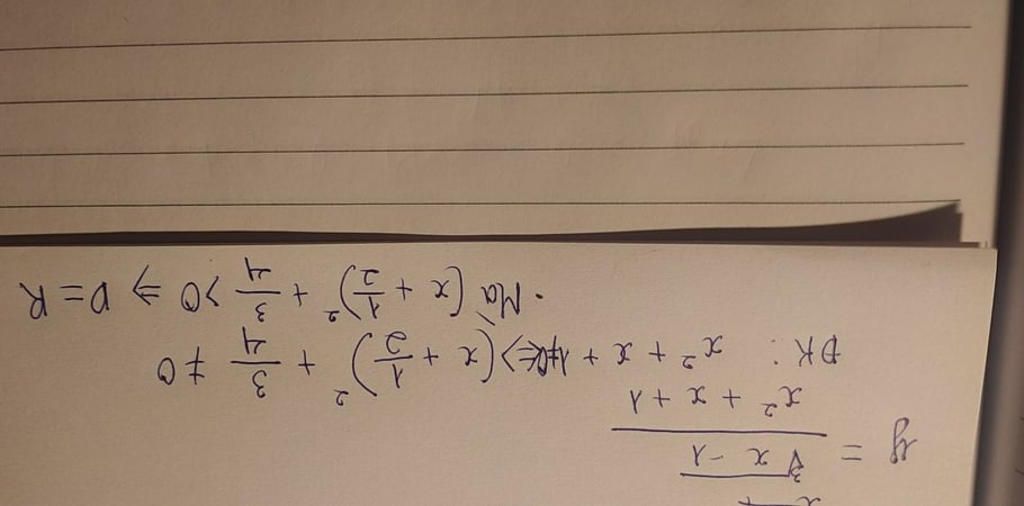 y = \frac{\sqrt[3]{x - 1}}{x^2 + x + 1}
DK: x^2 + x + 1 ≠ 0 <=> (x + \frac{1}{2})^2 + \frac{3}{4} ≠ 0
. Mà (x + \frac{1}{2})^2 + \frac{3}{4} > 0 => D = R